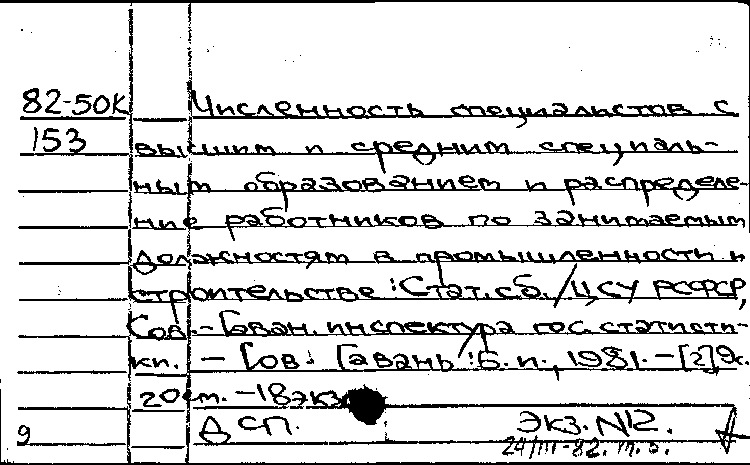 82-50К Численность специалистов с
153 высшим и средним специаль-
ным образованием и распределе-
ние работников по занимаемым
должностям в промышленности и
строительстве : Стат. сб. / ЦСУ РСФСР,
Сов.-Гаван. инспектура гос. статисти-
ки. – Сов. Гавань : Б. и., 1981. – [2], 9 с.
20 см. – 18 экз.
ДСП. Экз. N12.
9 24/III-82. т. о.